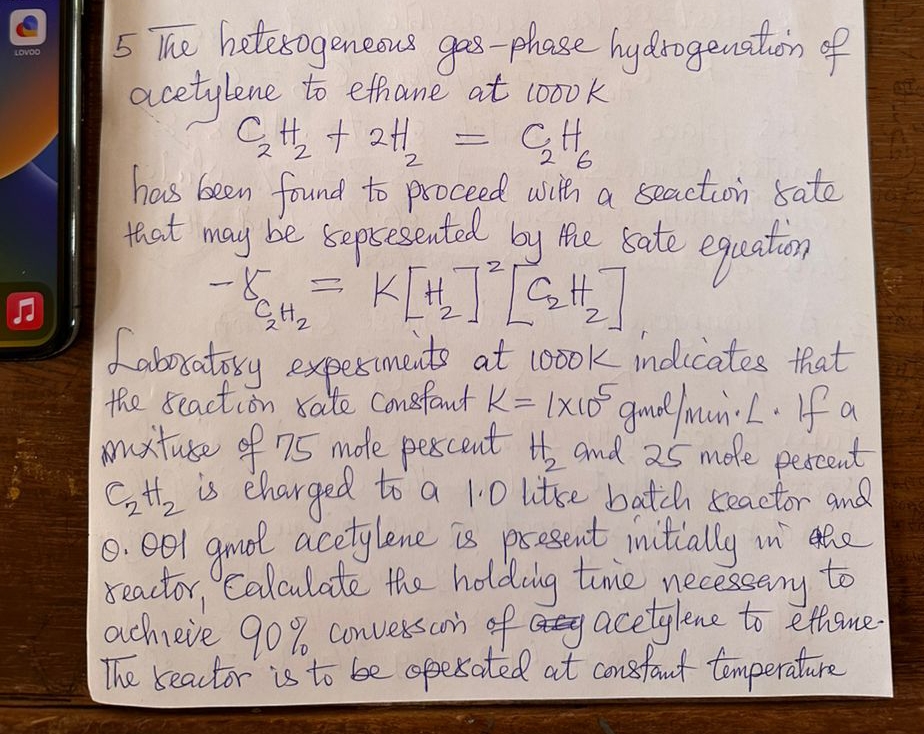 LOVOO
5 The heterogeneous gas-phase hydrogenation of
acetylene to ethane at 1000K
C₂H₂ + 2H₂ = C₂H₆
has been found to proceed with a reaction rate
that may be represented by the rate equation
-r_C₂H₂ = K[H₂]²[C₂H₂]
Laboratory experiments at 1000K indicates that
the reaction rate constant K = 1x10⁵ gmol/min·L. If a
mixture of 75 mole percent H₂ and 25 mole percent
C₂H₂ is charged to a 1.0 litre batch reactor and
0.001 gmol acetylene is present initially in the
reactor, Calculate the holding time necessary to
achieve 90% conversion of acetylene to ethane.
The reactor is to be operated at constant temperature